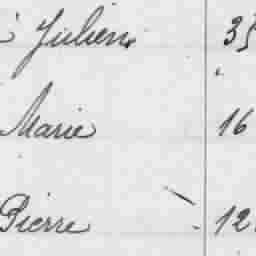 Julien 35
Marie 16
Pierre 12